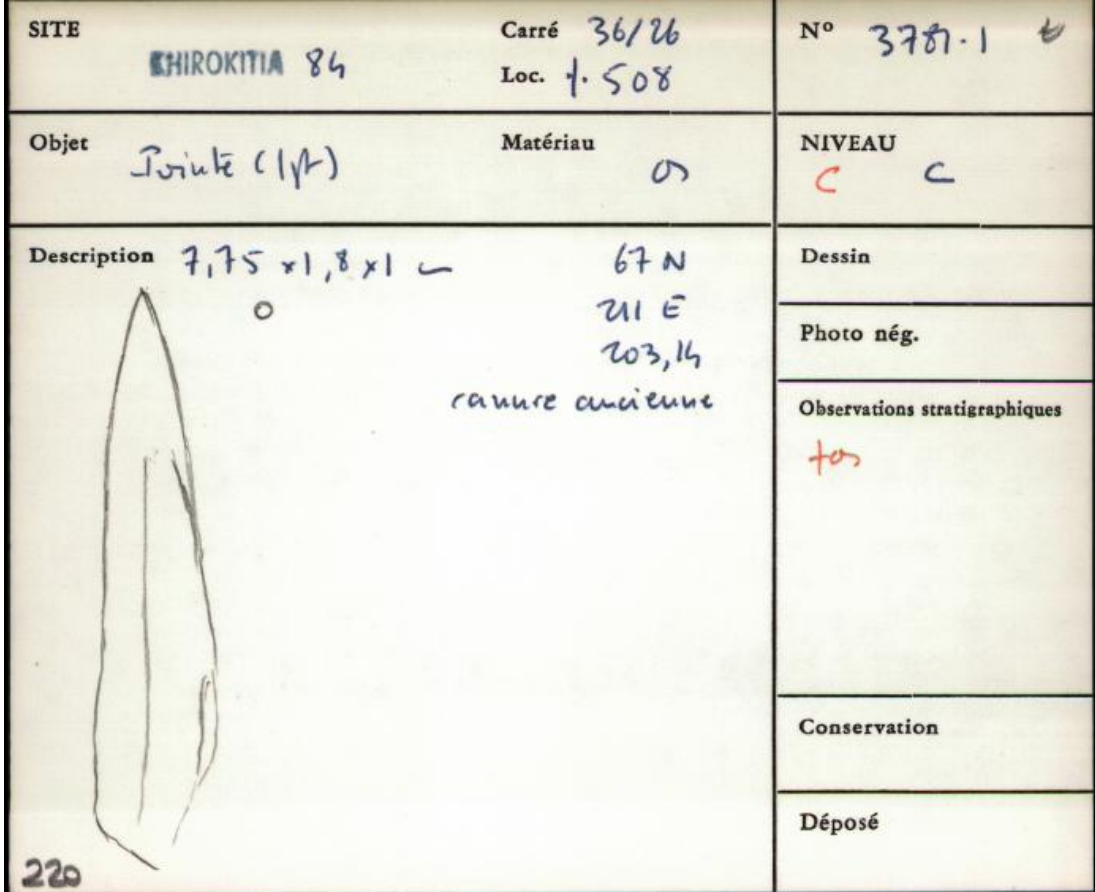 SITE
KHIROKITIA 84
Carré 36/26
Loc. f. 508
N° 3781.1
Objet
Pointe (1 pt)
Matériau
os
NIVEAU
C C
Description 7,75 x 1,8 x 1
67 N
211 E
203,14
ancienne
Dessin
Photo nég.
Observations stratigraphiques
Conservation
Déposé
220